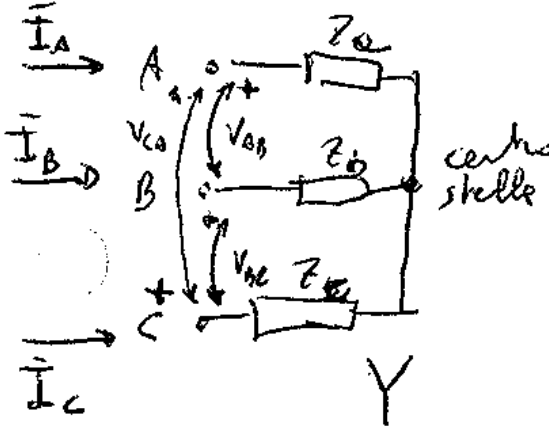 ĪA A Za
VCA VAB
ĪB B Zb centro
stella
VBC Zc
C
ĪC Y